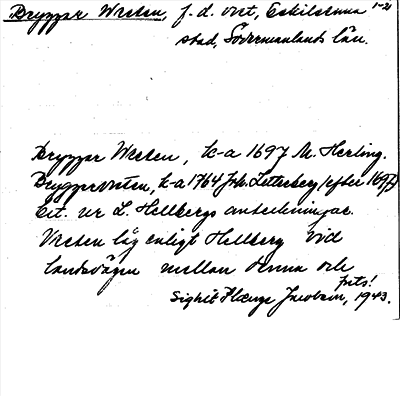 Bryggar Vreten, f.d. vret, Eskilstuna 1-21
stad, Södermanlands län.
Bryggar Vreten, k-a 1697 M. Herling.
Bryggarevreten, k-a 1764 Joh. Letterberg (efter 1697)
Cit. ur L. Hellbergs anteckningar.
Vreten låg enligt Hellberg vid
landsvägen mellan denna och
frits!
Sigrit Plænge Jacobson, 1943.